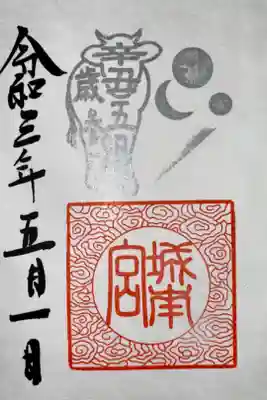 令和三年五月一日
辛丑五月
歳
城南
宮